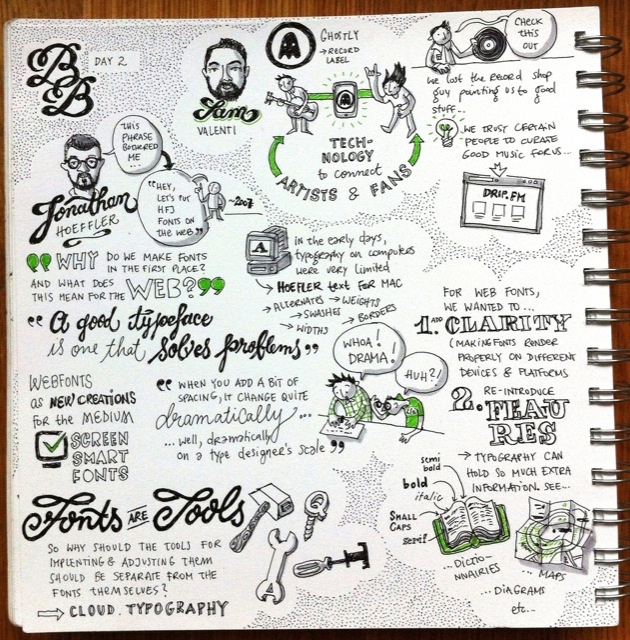 BB
DAY 2
Sam
VALENTI
GHOSTLY
→ RECORD
LABEL
TECH-
NOLOGY
to connect
ARTISTS & FANS
CHECK
THIS
OUT
We lost the RECORD SHOP
guy pointing us to good
stuff...
WE TRUST CERTAIN
PEOPLE TO CURATE
GOOD MUSIC FOR US...
DRIP.FM
THIS
PHRASE
BOTHERED
ME
Jonathan
HOEFFLER
"HEY,
LET'S PUT
HFJ
FONTS ON
THE WEB"
~2007
"WHY DO WE MAKE FONTS
IN THE FIRST PLACE?
AND WHAT DOES
THIS MEAN FOR THE WEB?"
A
in the early days,
typography on computers
were very limited
→ HOEFLER text FOR MAC
→ ALTERNATES → WEIGHTS
→ SWASHES → BORDERS
→ WIDTHS
"A good typeface
is one that solves problems"
WEBFONTS
as NEW CREATIONS
for the MEDIUM
SCREEN
SMART
FONTS
"WHEN YOU ADD A BIT OF
SPACING, IT CHANGE QUITE
dramatically...
... well, dramatically
on a type designer's scale"
WHOA!
DRAMA!
HUH?!
FOR WEB FONTS,
WE WANTED TO...
1. ADD CLARITY
(MAKING FONTS RENDER
PROPERLY ON DIFFERENT
DEVICES & PLATFORMS
2. RE-INTRODUCE
FEATU
RES
→ TYPOGRAPHY CAN
HOLD SO MUCH EXTRA
INFORMATION. SEE...
semi
bold
bold
italic
SMALL
CAPS
serif
... DICTIO-
NNAIRIES
... MAPS
... DIAGRAMS
etc...
Fonts ARE Tools
SO WHY SHOULD THE TOOLS FOR
IMPLENTING & ADJUSTING THEM
SHOULD BE SEPARATE FROM THE
FONTS THEMSELVES?
→ CLOUD.TYPOGRAPHY